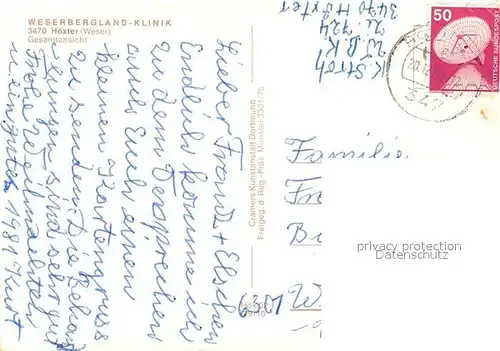 WESERBERGLAND-KLINIK
3470 Höxter (Weser)
Gesamtansicht
Lieber Franz + Elschen
Endlich komme ich
zu dem Versprechen
auch Euch einen
kleinen Kartengruss
zu senden. Die Behand
lungen sind sehr gut
Frohe Weihnachten
u. ein gutes 1981 Kurt
Cramers Kunstanstalt Dortmund
Freigeg. d. Reg.-Präs. Münster 3301/75
K. Stroh
W.B.K.
Zi. 724
3470 Höxter
50
DEUTSCHE BUNDESPOST
347
Familie
Fr
Bi
6301 W
privacy protection
Datenschutz